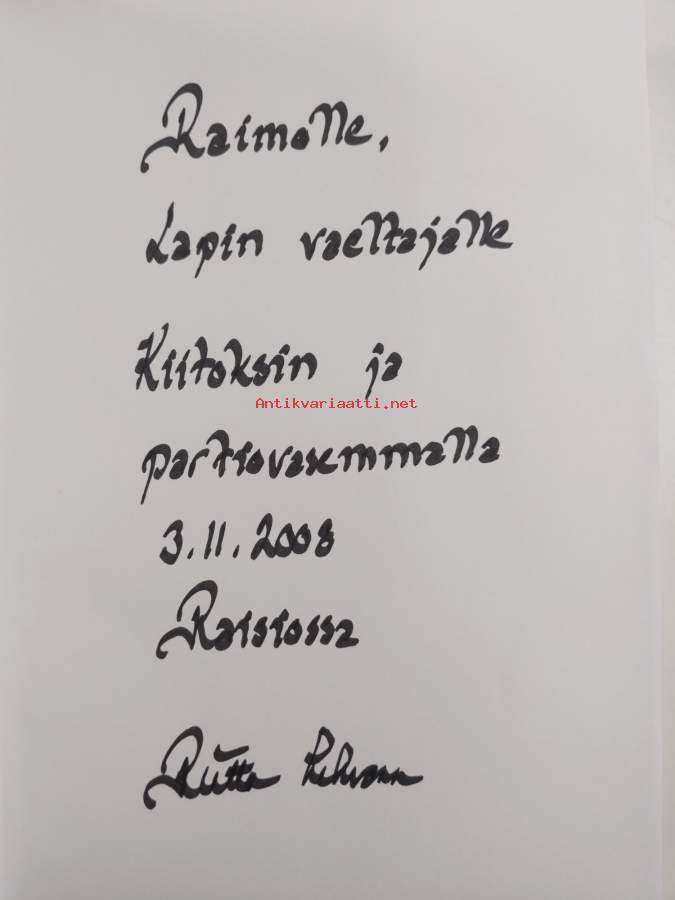 Raimolle,
Lapin vaeltajalle
Kiitoksin ja
Antikvariaatti.net
partiovasemmalla
3.11.2008
Raisiossa
Riitta